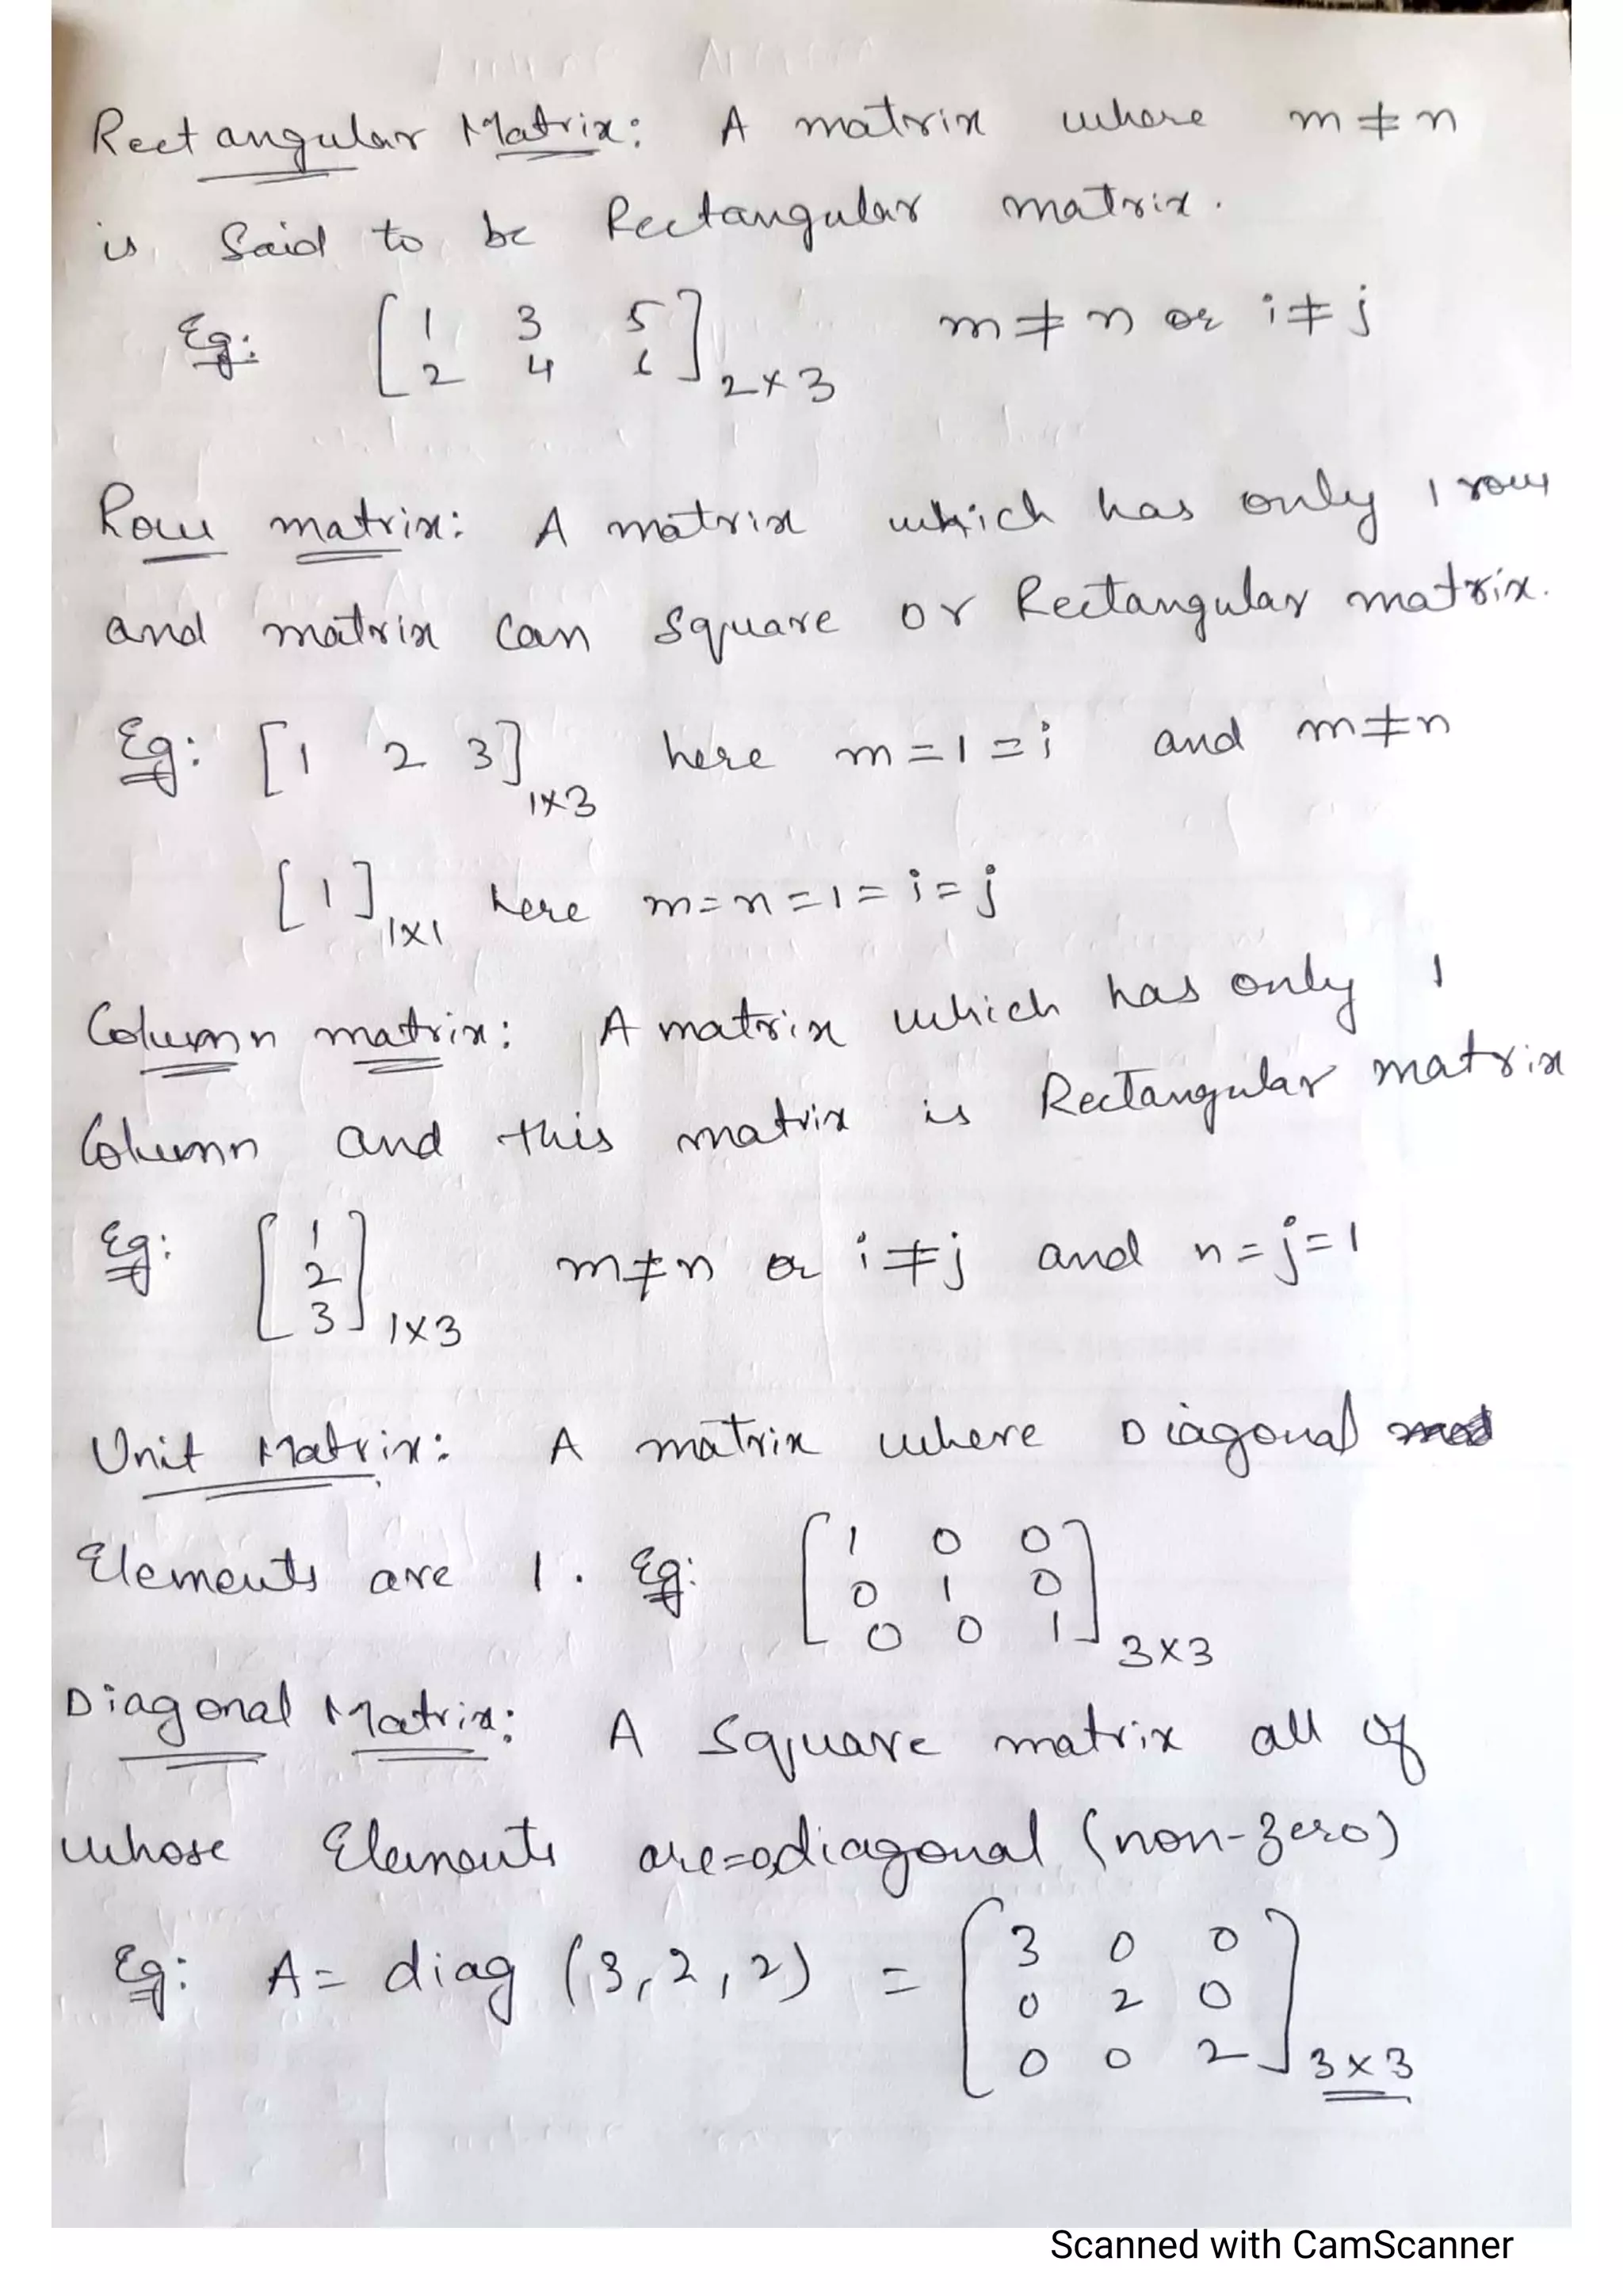 Rectangular Matrix: A matrix where m ≠ n
is Said to be Rectangular matrix.
Eg: [1 3 5
2 4 6]2×3 m ≠ n or i ≠ j
Row matrix: A matrix which has only 1 row
and matrix can square or Rectangular matrix.
Eg: [1 2 3]1×3 here m = 1 = i and m ≠ n
[1]1×1 here m = n = 1 = i = j
Column matrix: A matrix which has only 1
Column and this matrix is Rectangular matrix
Eg: [1
2
3]1×3 m ≠ n or i ≠ j and n = j = 1
Unit Matrix: A matrix where Diagonal
Elements are 1. Eg: [1 0 0
0 1 0
0 0 1]3×3
Diagonal Matrix: A Square matrix all of
whose Elements are=0,diagonal (non-zero)
Eg: A = diag (3, 2, 2) = [3 0 0
0 2 0
0 0 2]3×3
Scanned with CamScanner